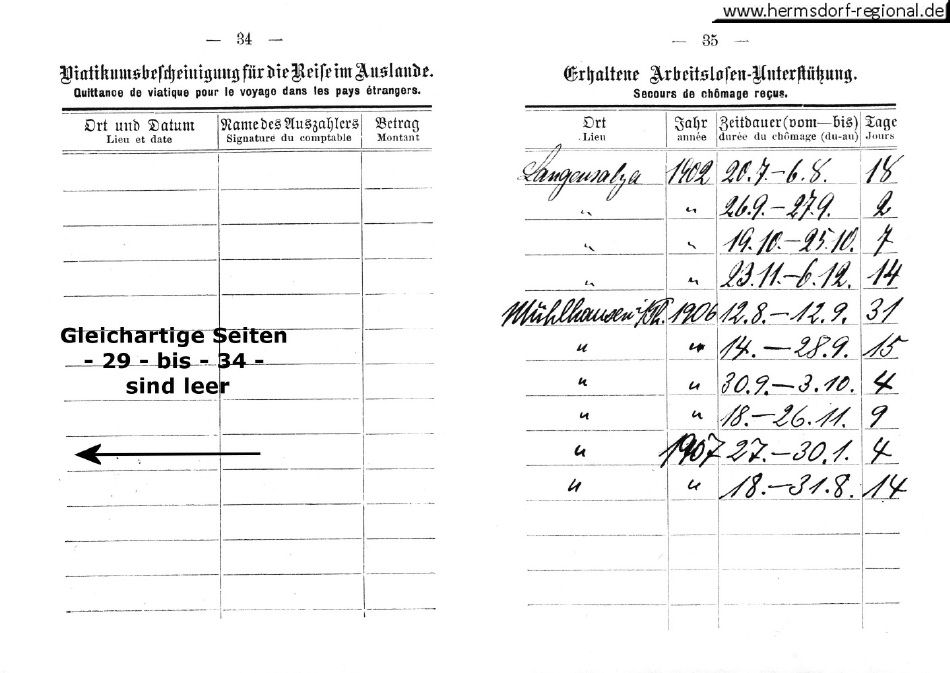 www.hermsdorf-regional.de
— 34 —
Viatikumsbescheinigung für die Reise im Auslande.
Quittance de viatique pour le voyage dans les pays étrangers.
Ort und Datum Name des Auszahlers Betrag
Lieu et date Signature du comptable Montant
Gleichartige Seiten
- 29 - bis - 34 -
sind leer
— 35 —
Erhaltene Arbeitslosen-Unterstützung.
Secours de chômage reçus.
Ort Jahr Zeitdauer (vom—bis) Tage
Lieu année durée du chômage (du-au) Jours
Langensalza 1902 20.7.—6.8. 18
" " 26.9.—27.9. 2
" " 19.10.—25.10. 7
" " 23.11.—6.12. 14
Mühlhausen i/Th. 1906 12.8.—12.9. 31
" " 14.—28.9. 15
" " 30.9.—3.10. 4
" " 18.—26.11. 9
" 1907 27.—30.1. 4
" " 18.—31.8. 14